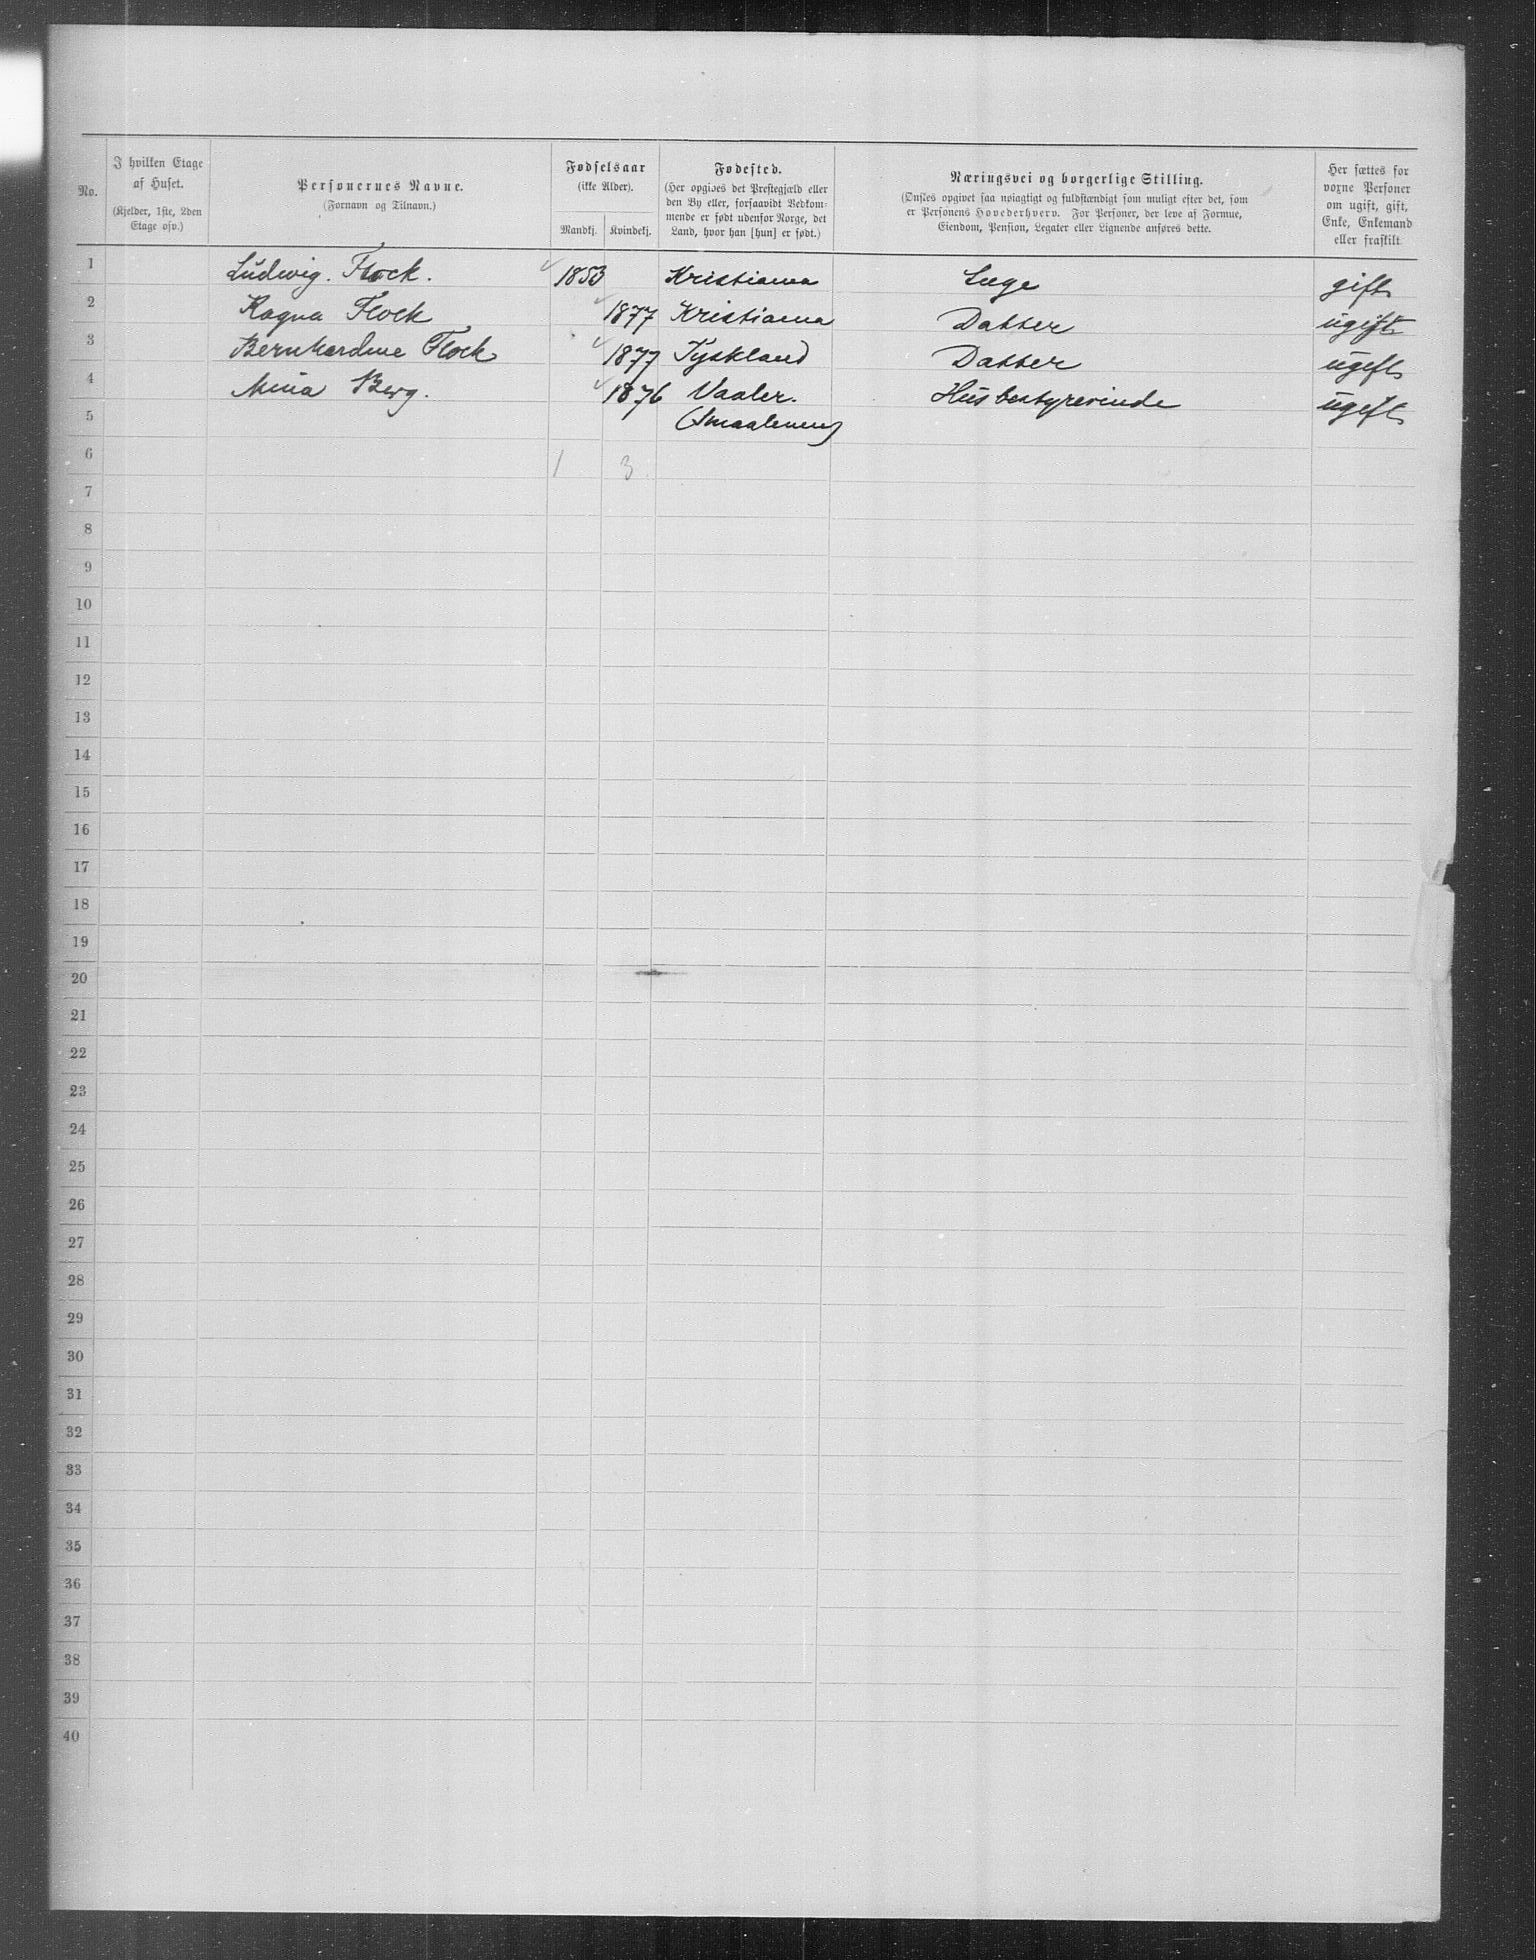 No.
I hvilken Etage af Huset. (Kjelder, 1ste, 2den Etage osv.)
Personernes Navne. (Fornavn og Tilnavn.)
Fødselsaar (ikke Alder).
Mandkj. Kvindekj.
Fødested. (Her opgives det Prestegjæld eller den By eller, forsaavidt Vedkommende er født udenfor Norge, det Land, hvor han [hun] er født.)
Næringsvei og borgerlige Stilling. (Ønskes opgivet saa nøiagtigt og fuldstændigt som muligt efter det, som er Personens Hovederhverv. For Personer, der leve af Formue, Eiendom, Pension, Legater eller Lignende anføres dette.
Her sættes for voxne Personer om ugift, gift, Enke, Enkemand eller fraskilt
1 Ludwig. Flock. 1853 Kristiania Læge gift
2 Ragna Flock 1877 Kristiania Datter ugift
3 Bernhardine Flock 1877 Tyskland Datter ugift
4 Mina Berg. 1876 Vaaler. Husbestyrerinde ugift
5 (Smaalenene)
6 1 3
7
8
9
10
11
12
13
14
15
16
17
18
19
20
21
22
23
24
25
26
27
28
29
30
31
32
33
34
35
36
37
38
39
40